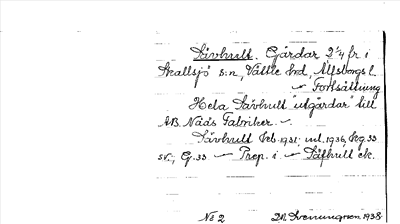 Sävhult. Gårdar 2 1/4 fr. i
Skallsjö s:n, Vättle hd, Älfsborgs l.
— Fortsättning
Hela Sävhult "utgårdar" till
AB. Nääs Fabriker. —
Sävhult Feb. 1931. inl. 1936, Reg. 33
sv., G. 33 — Prop. i — Säfhult ek.
No 2 D. Svenungson 1938